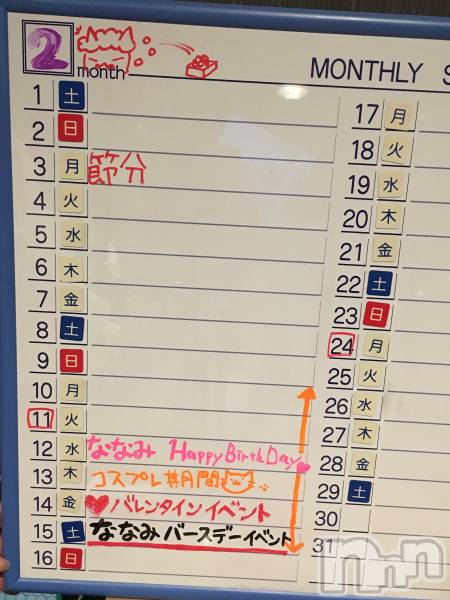 2
month
MONTHLY S
1 土
2 日
3 月 節分
4 火
5 水
6 木
7 金
8 土
9 日
10 月
11 火
12 水 ななみ Happy BirthDay
13 木 コスプレ月間
14 金 バレンタインイベント
15 土 ななみバースデーイベント
16 日
17 月
18 火
19 水
20 木
21 金
22 土
23 日
24 月
25 火
26 水
27 木
28 金
29 土
30
31